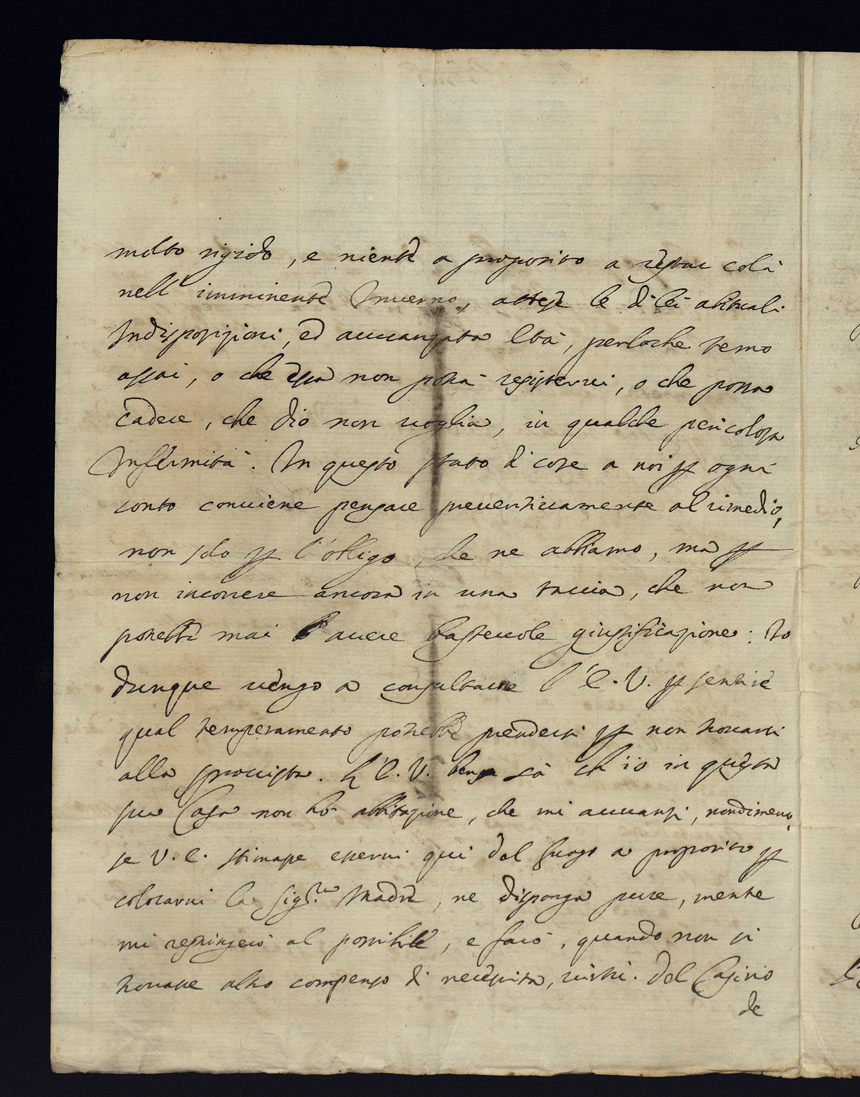 molto rigido, e niente a proposito a restar colà
nell' imminente Inverno, attese le di lei abituali
Indisposizioni, ed auuanzata Età, perloche temo
assai, o che essa non possa resisterui, o che possa
cadere, che Dio non voglia, in qualche pericolosa
Infermità. In questo stato di cose a noi p ogni
conto conuiene pensare preuentiuamente al rimedio,
non solo p l'obligo che ne abbiamo, ma p
non incorrere ancora in una taccia, che non
potrebbe mai auere basteuole giustificazione: Io
dunque uengo a consultarne l'E. V. p sentire
qual temperamento potrebbe prendersi p non trouarsi
alla sprouista. L'E. V. ben sà ch'io in questa
sua Casa non hò abbitazione, che mi auuanzi, nondimeno,
se V. E. stimasse esserui qui del luogo a proposito p
colocarui la Sig.ra Madre, ne disponga pure, mentre
mi restringerò al possibile, e farò, quando non si
trouasse altro compenso di necessità,
del Casino
de